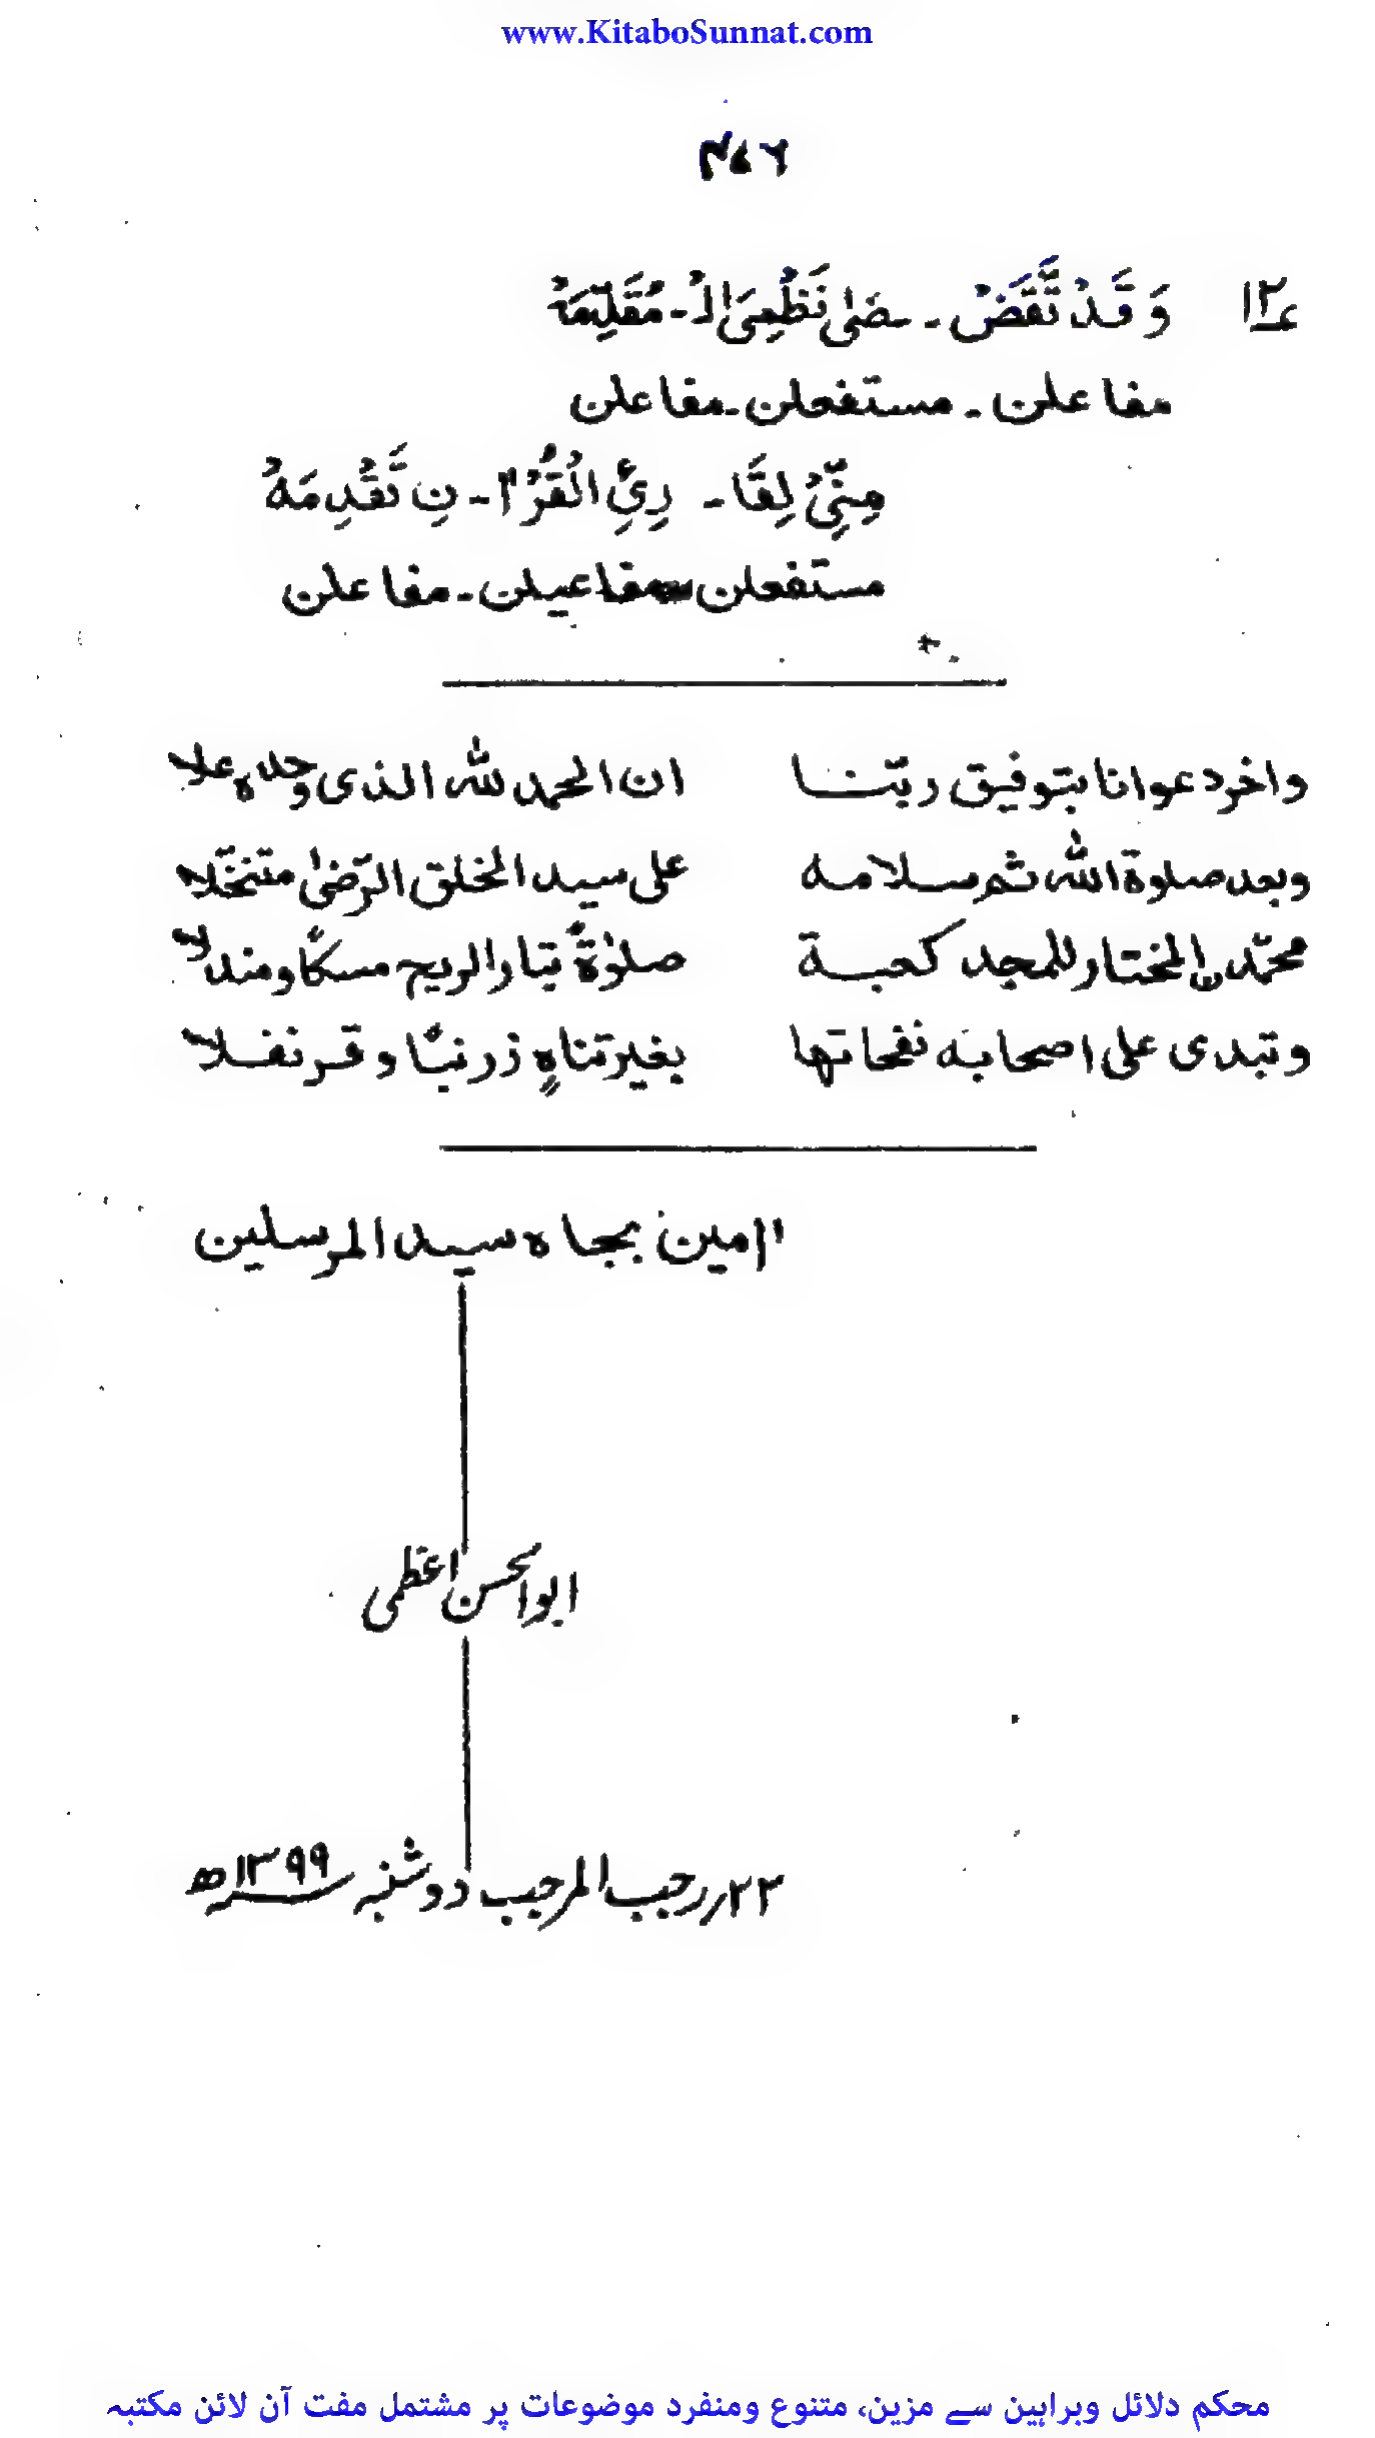 www.KitaboSunnat.com
۴۷۶
۱۲؎ وَ قَدْ تَّقَضْ ۔ ـضٰى نَظْمِىَ الْ ۔ مُقَدِّمَهْ
مفاعلن ۔ مستفعلن ۔ مفاعلن
مِنِّىْ لِقَا ۔ رِئِ الْقُرْاٰ ۔ نِ تَقْدِمَهْ
مستفعلن ۔ مفاعيلن ۔ مفاعلن
واخردعوانا بتوفيق ربّنا ان الحمد لله الذى وحده علا
وبعد صلوة الله ثم سلامه على سيد الخلق الرّضىٰ متنخّلا
محمّدن المختار للمجد كعبة صلوٰةً تبارالريح مسكًا ومندلا
وتبدى على اصحابه نفحاتها بغيرتناهٍ زرنبًا وقرنفلا
اٰمين بجاه سيد المرسلين
ابوالحسن اعظمی
۲۳؍رجب المرجب دوشنبہ ۱۳۹۹ھ
محکم دلائل وبراہین سے مزین، متنوع ومنفرد موضوعات پر مشتمل مفت آن لائن مکتبہ